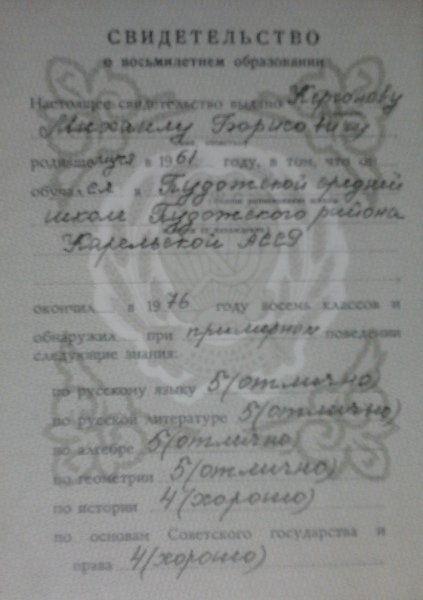 СВИДЕТЕЛЬСТВО
о восьмилетнем образовании
Настоящее свидетельство выдано
Михаилу Борисовичу
родившемуся в 1961 году, в том, что он
обучался в Пудожской средней
школе Пудожского района
Карельской АССР
окончил в 1976 году восемь классов и
обнаружил при примерном поведении
следующие знания:
по русскому языку 5 (отлично)
по русской литературе 5 (отлично)
по алгебре 5 (отлично)
по геометрии 5 (отлично)
по истории 4 (хорошо)
по основам Советского государства и
права 4 (хорошо)